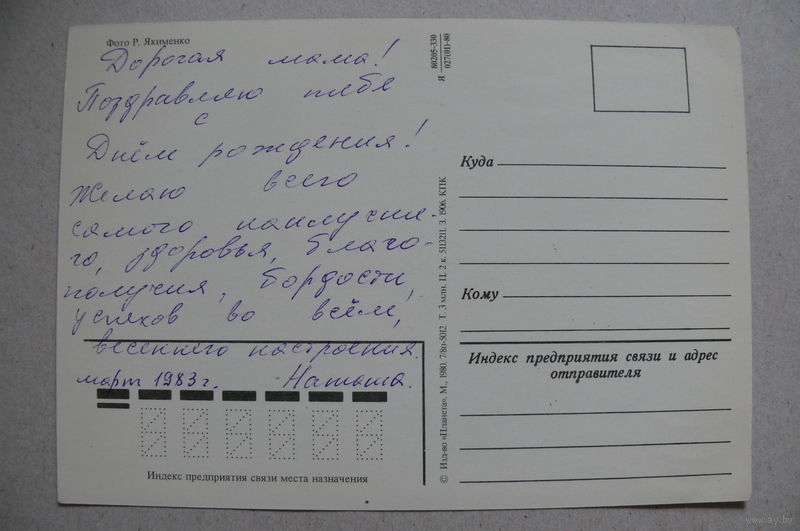 Фото Р. Якименко
Дорогая мама!
Поздравляю тебя
с
Днём рождения!
Желаю всего
самого наилучше-
го, здоровья, благо-
получия, бодрости,
успехов во всём,
весеннего настроения.
март 1983 г. Наташа.
Индекс предприятия связи места назначения
Я 80205-330
027(01)-80
© Изд-во «Планета». М., 1980. 7/8п-5012. Т. 3 млн. Ц. 2 к. 5113211. З. 1906. КПК
Куда
Кому
Индекс предприятия связи и адрес
отправителя
www.ay.by